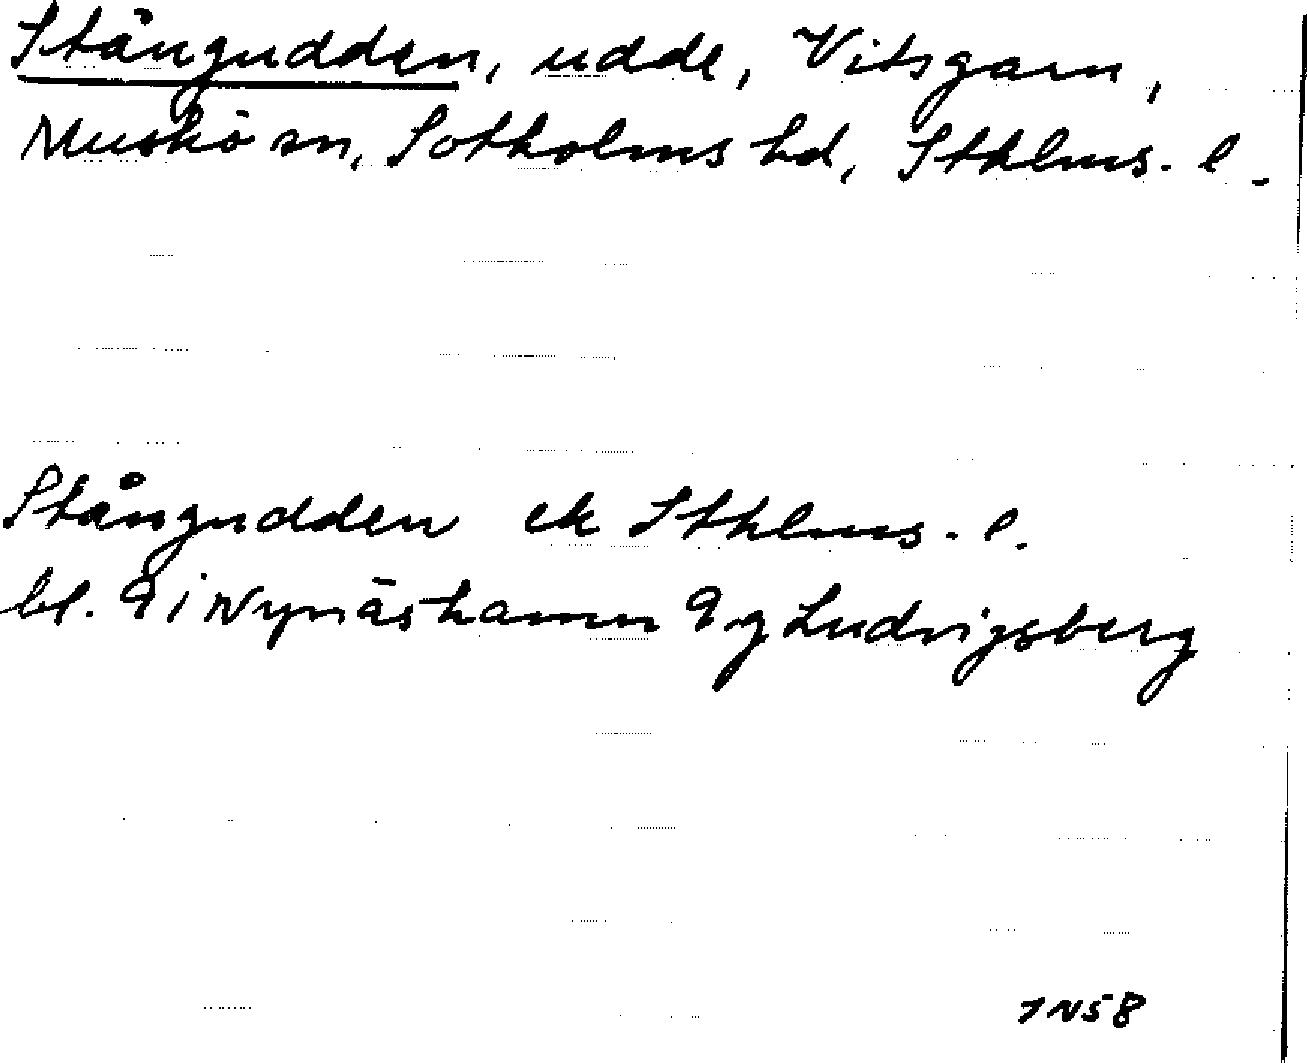 Stångudden, udde, Vitsgarn,
Muskö sn, Sotholms hd, Sthlms. l.
Stångudden ek Sthlms. l.
bl. 9 i Nynäshamn 9 g Ludvigsberg
7N58